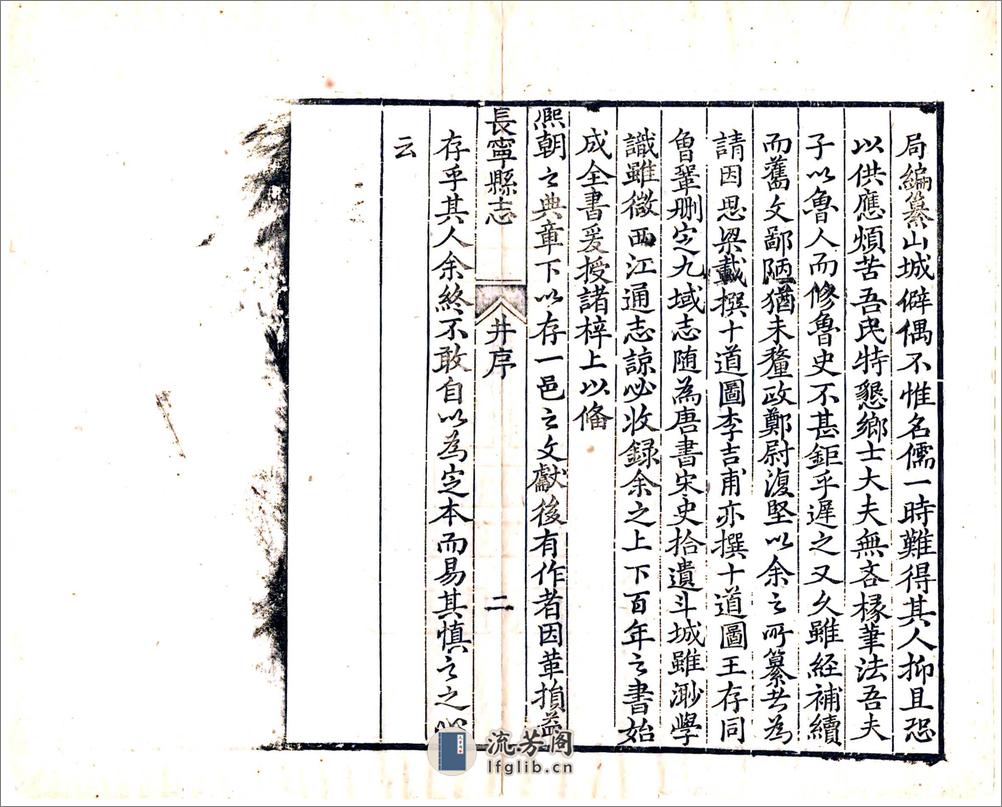 局編纂山城僻偶不惟名儒一時難得其人抑且恐
以供應煩苦吾民特懇鄉士大夫無吝椽筆法吾夫
子以魯人而修魯史不甚鉅乎遲之又久雖經補續
而舊文鄙陋猶未釐政鄭尉復堅以余之所纂者為
請因思梁載撰十道圖李吉甫亦撰十道圖王存同
曾鞏刪定九域志随為唐書宋史拾遺斗城雖渺學
識雖微西江通志諒必收録余之上下百年之書始
成全書爰授諸梓上以俻
熈朝之典章下以存一邑之文獻後有作者因革損益
長寧縣志
井序
二
存乎其人余終不敢自以為定本而易其慎言之
云
流芳阁
lfglib.cn